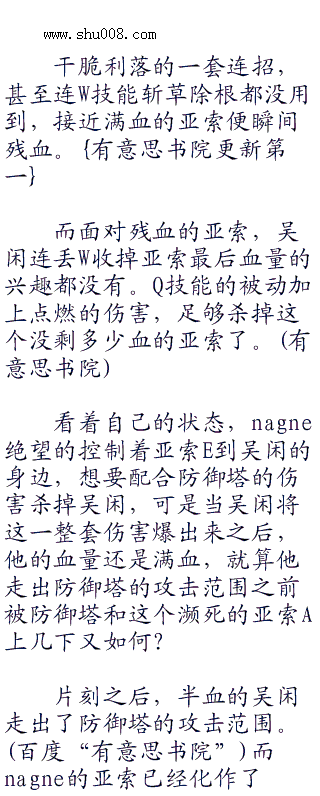 www.shu008.com
干脆利落的一套连招，
甚至连W技能斩草除根都没用
到，接近满血的亚索便瞬间
残血。{有意思书院更新第
一}
而面对残血的亚索，吴
闲连丢W收掉亚索最后血量的
兴趣都没有。Q技能的被动加
上点燃的伤害，足够杀掉这
个没剩多少血的亚索了。(有
意思书院)
看着自己的状态，nagne
绝望的控制着亚索E到吴闲的
身边，想要配合防御塔的伤
害杀掉吴闲，可是当吴闲将
这一整套伤害爆出来之后，
他的血量还是满血，就算他
走出防御塔的攻击范围之前
被防御塔和这个濒死的亚索A
上几下又如何？
片刻之后，半血的吴闲
走出了防御塔的攻击范围。
(百度“有意思书院”)而
nagne的亚索已经化作了